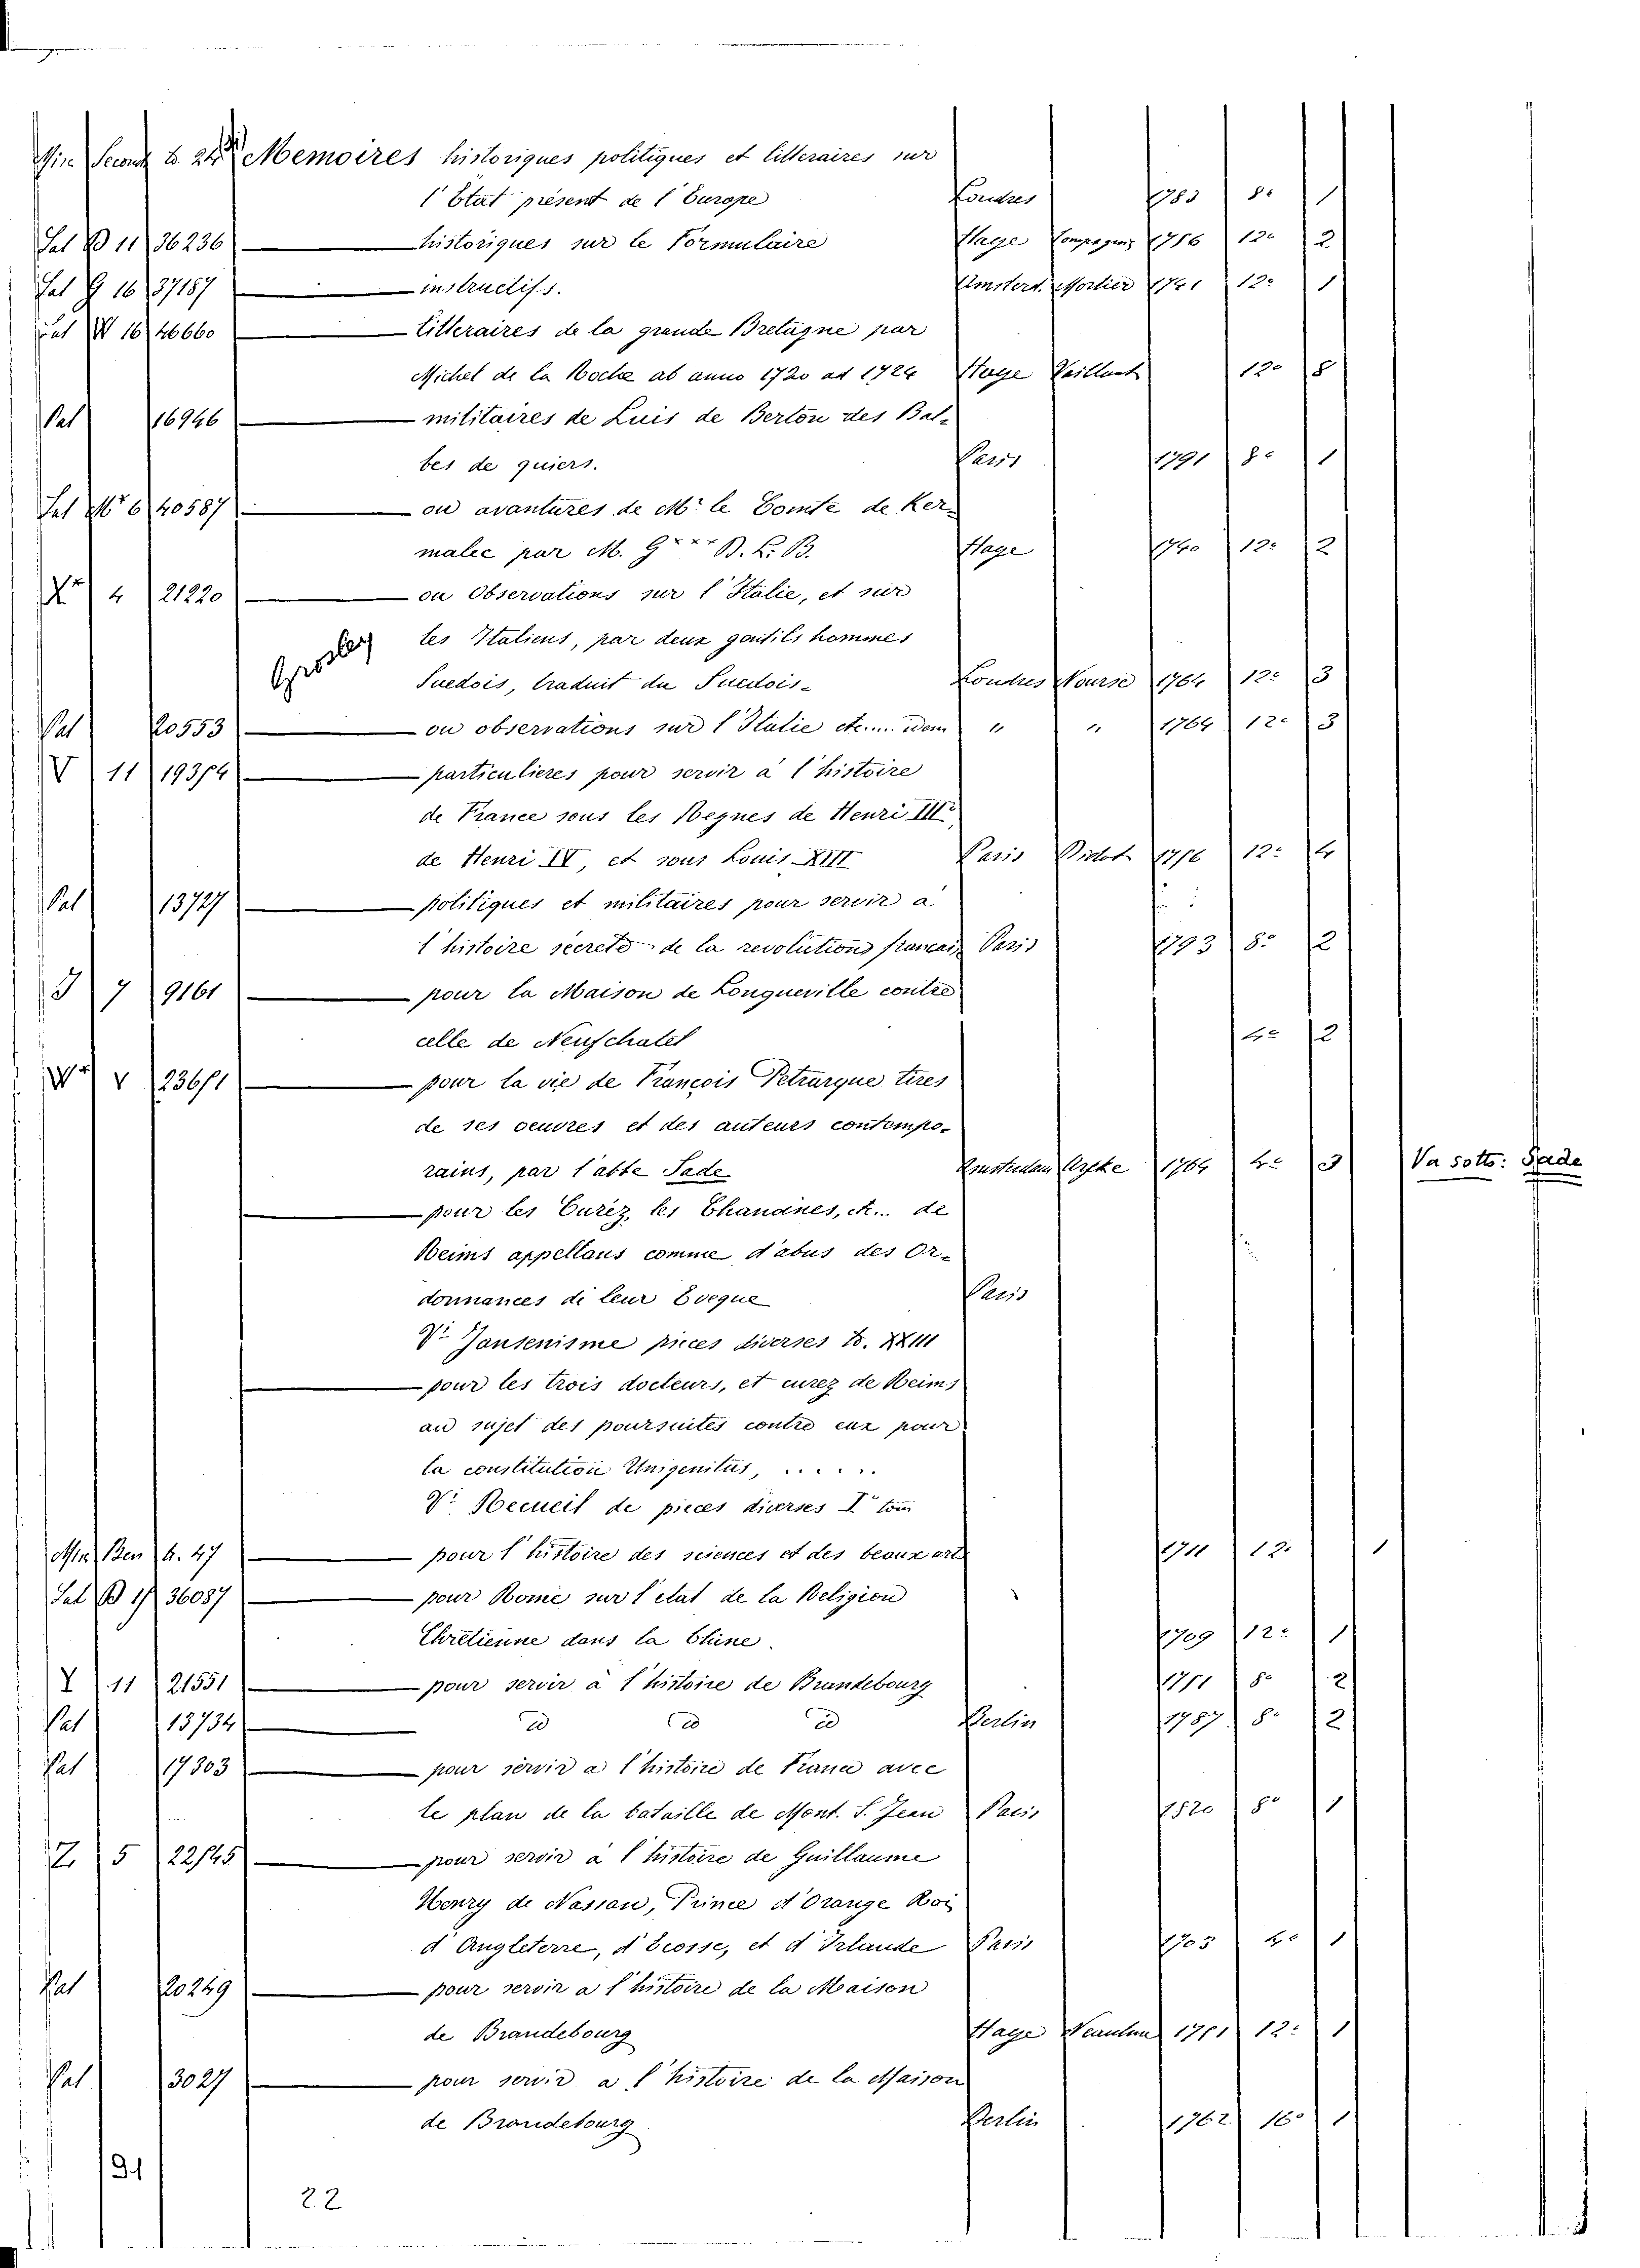 Min. Second b. 24 Memoires historiques politiques et litteraires sur
l'Etat présent de l'Europe Londres 1783 8° 1
Sal B 11 36236 — historiques sur le Formulaire Haye Compagnie 1756 12° 2
Sal G 16 37187 — instructifs. Amsterd. Mortier 1741 12° 1
Sal W 16 46660 — litteraires de la grande Bretagne par
Michel de la Roche ab anno 1720 ad 1724 Haye Vaillant 12° 8
Pal 16946 — militaires de Luis de Berton des Bal-
bes de quiers. Paris 1791 8° 1
Sal 6 40587 — ou avantures de Mr le Comte de Ker-
malec par M. G*** B. L. B. Hage 1740 12° 2
X 4 21220 — ou Observations sur l'Italie, et sur
Grosley les Italiens, par deux gentils hommes
Suedois, traduit du Suedois- Londres Nourse 1764 12° 3
Pal 20553 — ou observations sur l'Italie etc.... idem " " 1764 12° 3
V 11 19384 — particulieres pour servir à l'histoire
de France sous les Regnes de Henri III,
de Henri IV, et sous Louis XIII Paris Didot 1756 12° 4
Pal 13727 — politiques et militaires pour servir a
l'histoire secrete de la revolutions francais Paris 1793 8° 2
7 9161 — pour la Maison de Longueville contre
celle de Neufchatel 4° 2
W V 23681 — pour la vie de François Petrarque tires
de ses oeuvres et des auteurs contempo-
rains, par l'abbe Sade Amsterdam Arske 1764 4° 3 Va sotto: Sade
— pour les Curéz, les Chanoines, et... de
Reims appellans comme d'abus des Or-
donnances de leur Eveque Paris
V. Jansenisme pieces diverses T. XXIII
— pour les trois docteurs, et curez de Reims
au sujet des poursuites contre eux pour
la constitution Unigenitus, .....
V. Recueil de pieces diverses I tom
Min Ben b. 47 — pour l'histoire des sciences et des beaux arts 1711 12° 1
Sal B 17 36087 — pour Rome sur l'état de la Religion
Chrétienne dans la Chine. 1709 12° 1
Y 11 21551 — pour servir à l'histoire de Brandebourg 1751 8° 2
Pal 13734 — id id id Berlin 1787 8° 2
Pal 17303 — pour servir a l'histoire de France avec
le plan de la bataille de Mont. S. Jean Paris 1820 8° 1
Z 5 22145 — pour servir à l'histoire de Guillaume
Henry de Nassau, Prince d'Orange Roi
d'Angleterre, d'Ecosse, et d'Irlande Paris 1703 4° 1
Pal 20249 — pour servir a l'histoire de la Maison
de Brandebourg Haye 1751 12° 1
Pal 3027 — pour servir a l'histoire de la Maison
de Brandebourg Berlin 1762 16° 1
91
22